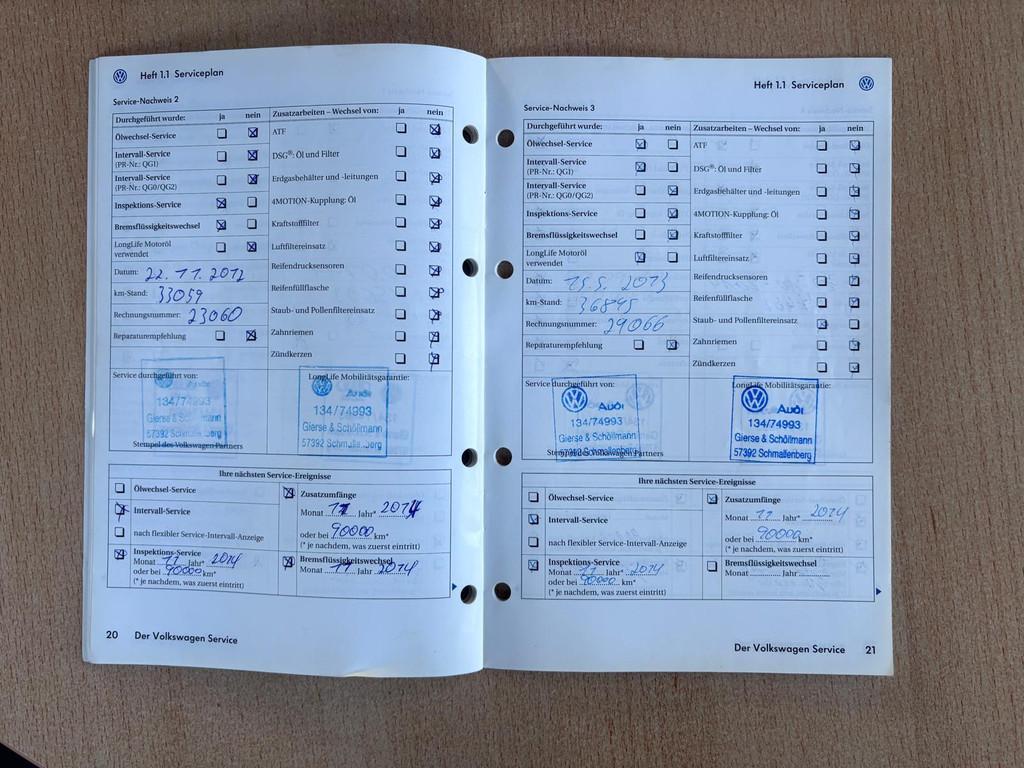 Heft 1.1 Serviceplan
Service-Nachweis 2
Durchgeführt wurde: ja nein
Ölwechsel-Service
Intervall-Service
(PR-Nr.: QG1)
Intervall-Service
(PR-Nr.: QG0/QG2)
Inspektions-Service
Bremsflüssigkeitswechsel
LongLife Motoröl
verwendet
Datum: 22.11.2012
km-Stand: 33059
Rechnungsnummer: 23060
Reparaturempfehlung
Zusatzarbeiten – Wechsel von: ja nein
ATF
DSG®: Öl und Filter
Erdgasbehälter und -leitungen
4MOTION-Kupplung: Öl
Kraftstofffilter
Luftfiltereinsatz
Reifendrucksensoren
Reifenfüllflasche
Staub- und Pollenfiltereinsatz
Zahnriemen
Zündkerzen
Service durchgeführt von:
134/74993
Gierse & Schöllmann
57392 Schmallenberg
Stempel des Volkswagen Partners
LongLife Mobilitätsgarantie:
Audi
134/74993
Gierse & Schöllmann
57392 Schmallenberg
Ihre nächsten Service-Ereignisse
Ölwechsel-Service
Intervall-Service
nach flexibler Service-Intervall-Anzeige
Inspektions-Service
Monat 11 Jahr* 2014
oder bei 90000 km*
(* je nachdem, was zuerst eintritt)
Zusatzumfänge
Monat 11 Jahr* 2014
oder bei 90000 km*
(* je nachdem, was zuerst eintritt)
Bremsflüssigkeitswechsel
Monat 11 Jahr 2014
20 Der Volkswagen Service
Heft 1.1 Serviceplan
Service-Nachweis 3
Durchgeführt wurde: ja nein
Ölwechsel-Service
Intervall-Service
(PR-Nr.: QG1)
Intervall-Service
(PR-Nr.: QG0/QG2)
Inspektions-Service
Bremsflüssigkeitswechsel
LongLife Motoröl
verwendet
Datum: 15.5.2013
km-Stand: 36845
Rechnungsnummer: 29066
Reparaturempfehlung
Zusatzarbeiten – Wechsel von: ja nein
ATF
DSG®: Öl und Filter
Erdgasbehälter und -leitungen
4MOTION-Kupplung: Öl
Kraftstofffilter
Luftfiltereinsatz
Reifendrucksensoren
Reifenfüllflasche
Staub- und Pollenfiltereinsatz
Zahnriemen
Zündkerzen
Service durchgeführt von:
Audi
134/74993
Gierse & Schöllmann
57392 Schmallenberg
Stempel des Volkswagen Partners
LongLife Mobilitätsgarantie:
Audi
134/74993
Gierse & Schöllmann
57392 Schmallenberg
Ihre nächsten Service-Ereignisse
Ölwechsel-Service
Intervall-Service
nach flexibler Service-Intervall-Anzeige
Inspektions-Service
Monat 11 Jahr* 2014
oder bei 90000 km*
(* je nachdem, was zuerst eintritt)
Zusatzumfänge
Monat 11 Jahr* 2014
oder bei 90000 km*
(* je nachdem, was zuerst eintritt)
Bremsflüssigkeitswechsel
Monat Jahr
Der Volkswagen Service 21